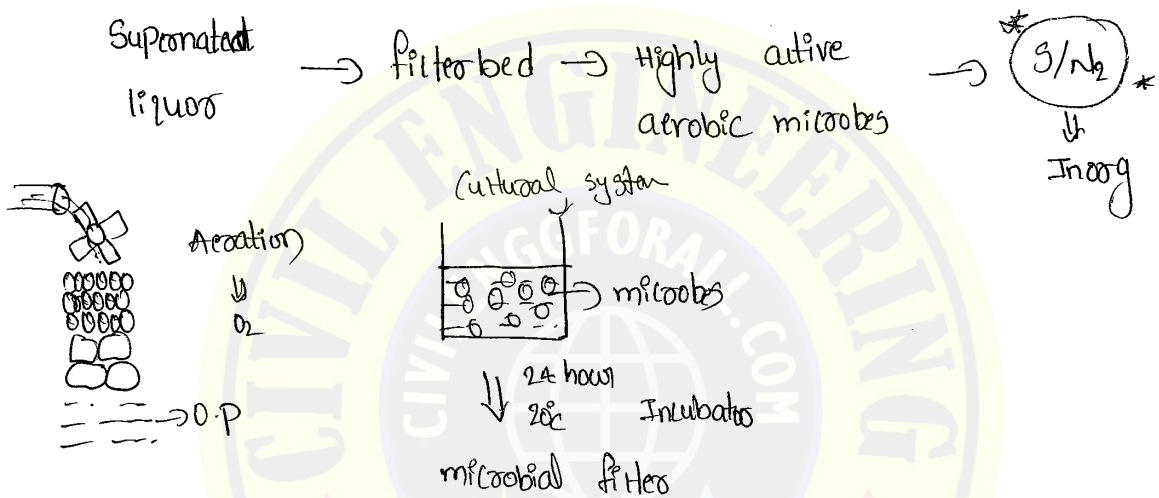 Supernatant liquor → filterbed → Highly active aerobic microbes → S/N₂
⇓
Inorg
Cultural system
Aeration
⇓
O₂
→ microbes
24 hour
20°c Incubator
→ O.P
microbial filter
CIVIL ENGINEERING
CIVILENGGFORALL.COM